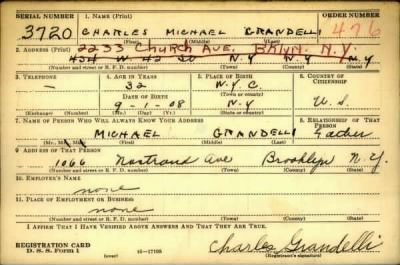 SERIAL NUMBER 1. NAME (Print) ORDER NUMBER
3720 CHARLES MICHAEL GRANDELLI 476
(First) (Middle) (Last)
2. ADDRESS (Print) 2233 CHURCH AVE. BKLYN. N.Y.
434 W 42 St N.Y N.Y N.Y
(Number and street or R. F. D. number) (Town) (County) (State)
3. TELEPHONE 4. AGE IN YEARS 5. PLACE OF BIRTH 6. COUNTRY OF CITIZENSHIP
— 32 N.Y.C.
DATE OF BIRTH (Town or county)
9-1-08 N.Y U.S.
(Exchange) (Number) (Mo.) (Day) (Yr.) (State or country)
7. NAME OF PERSON WHO WILL ALWAYS KNOW YOUR ADDRESS 8. RELATIONSHIP OF THAT PERSON
MICHAEL GRANDELLI Father
(Mr., Mrs., Miss) (First) (Middle) (Last)
9. ADDRESS OF THAT PERSON
1066 Nostrand Ave Brooklyn N.Y.
(Number and street or R. F. D. number) (Town) (County) (State)
10. EMPLOYER'S NAME
none
11. PLACE OF EMPLOYMENT OR BUSINESS
none
(Number and street or R. F. D. number) (Town) (County) (State)
I AFFIRM THAT I HAVE VERIFIED ABOVE ANSWERS AND THAT THEY ARE TRUE.
REGISTRATION CARD
D. S. S. Form 1 (over) 16-17105 Charles Grandelli
(Registrant's signature)